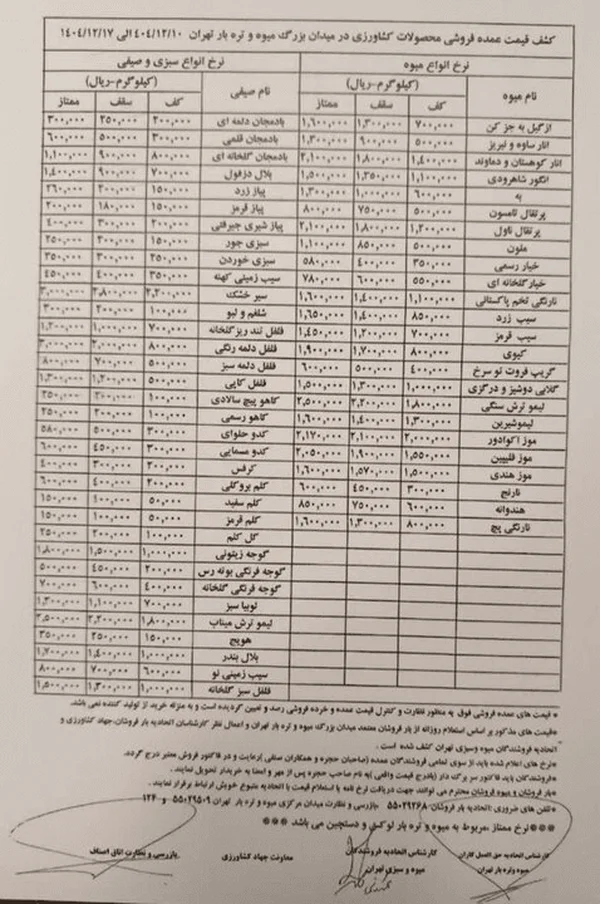 کشف قیمت عمده فروشی محصولات کشاورزی در میدان بزرگ میوه و تره بار تهران ۴۰۴/۱۲/۱۰ الی ۱۴۰۴/۱۲/۱۷
نرخ انواع میوه نرخ انواع سبزی و صیفی
نام میوه (کیلوگرم-ریال) نام صیفی (کیلوگرم-ریال)
کف سقف ممتاز کف سقف ممتاز
ازگیل به جز کن ۷۰۰,۰۰۰ ۱,۳۰۰,۰۰۰ ۱,۶۰۰,۰۰۰ بادمجان دلمه ای ۲۰۰,۰۰۰ ۲۵۰,۰۰۰ ۳۰۰,۰۰۰
انار ساوه و نیریز ۵۰۰,۰۰۰ ۹۰۰,۰۰۰ ۱,۳۰۰,۰۰۰ بادمجان قلمی ۳۰۰,۰۰۰ ۵۰۰,۰۰۰ ۶۰۰,۰۰۰
انار کوهستان و دماوند ۱,۴۰۰,۰۰۰ ۱,۸۰۰,۰۰۰ ۲,۱۰۰,۰۰۰ بادمجان گلخانه ای ۸۰۰,۰۰۰ ۹۰۰,۰۰۰ ۱,۱۰۰,۰۰۰
انگور شاهرودی ۱,۱۰۰,۰۰۰ ۱,۳۵۰,۰۰۰ ۱,۵۰۰,۰۰۰ بلال دزفول ۷۰۰,۰۰۰ ۹۰۰,۰۰۰ ۱,۴۰۰,۰۰۰
به ۶۰۰,۰۰۰ ۱,۰۰۰,۰۰۰ ۱,۳۰۰,۰۰۰ پیاز زرد ۱۵۰,۰۰۰ ۲۰۰,۰۰۰ ۲۶۰,۰۰۰
پرتقال تامسون ۵۰۰,۰۰۰ ۷۵۰,۰۰۰ ۸۰۰,۰۰۰ پیاز قرمز ۱۵۰,۰۰۰ ۱۸۰,۰۰۰ ۲۰۰,۰۰۰
پرتقال ناول ۱,۲۰۰,۰۰۰ ۱,۸۰۰,۰۰۰ ۲,۱۰۰,۰۰۰ پیاز شیری جیرفتی ۲۰۰,۰۰۰ ۳۰۰,۰۰۰ ۴۰۰,۰۰۰
ملون ۵۰۰,۰۰۰ ۸۵۰,۰۰۰ ۱,۱۰۰,۰۰۰ سبزی جور ۱۵۰,۰۰۰ ۲۰۰,۰۰۰ ۲۵۰,۰۰۰
خیار رسمی ۳۵۰,۰۰۰ ۴۰۰,۰۰۰ ۵۸۰,۰۰۰ سبزی خوردن ۲۵۰,۰۰۰ ۳۰۰,۰۰۰ ۳۵۰,۰۰۰
خیار گلخانه ای ۵۵۰,۰۰۰ ۶۰۰,۰۰۰ ۷۸۰,۰۰۰ سیب زمینی کهنه ۳۵۰,۰۰۰ ۴۰۰,۰۰۰ ۴۵۰,۰۰۰
نارنگی تخم پاکستانی ۱,۱۰۰,۰۰۰ ۱,۴۰۰,۰۰۰ ۱,۶۰۰,۰۰۰ سیر خشک ۲,۲۰۰,۰۰۰ ۲,۸۰۰,۰۰۰ ۳,۰۰۰,۰۰۰
سیب زرد ۸۵۰,۰۰۰ ۱,۴۰۰,۰۰۰ ۱,۶۵۰,۰۰۰ شلغم و لبو ۱۰۰,۰۰۰ ۲۰۰,۰۰۰ ۳۰۰,۰۰۰
سیب قرمز ۷۰۰,۰۰۰ ۱,۲۰۰,۰۰۰ ۱,۴۵۰,۰۰۰ فلفل تند ریز گلخانه ۷۰۰,۰۰۰ ۱,۰۰۰,۰۰۰ ۱,۲۰۰,۰۰۰
کیوی ۸۰۰,۰۰۰ ۱,۷۰۰,۰۰۰ ۱,۹۰۰,۰۰۰ فلفل دلمه رنگی ۸۰۰,۰۰۰ ۲,۰۰۰,۰۰۰ ۳,۰۰۰,۰۰۰
گریپ فروت تو سرخ ۴۰۰,۰۰۰ ۵۰۰,۰۰۰ ۶۰۰,۰۰۰ فلفل دلمه سبز ۵۰۰,۰۰۰ ۷۰۰,۰۰۰ ۸۰۰,۰۰۰
گلابی دوشیز و درگزی ۱,۰۰۰,۰۰۰ ۱,۳۰۰,۰۰۰ ۱,۵۰۰,۰۰۰ فلفل کاپی ۵۰۰,۰۰۰ ۱,۲۰۰,۰۰۰ ۱,۳۰۰,۰۰۰
لیمو ترش سنگی ۱,۸۰۰,۰۰۰ ۲,۲۰۰,۰۰۰ ۲,۵۰۰,۰۰۰ کاهو پیچ سالادی ۱۰۰,۰۰۰ ۲۰۰,۰۰۰ ۲۵۰,۰۰۰
لیموشیرین ۱,۳۰۰,۰۰۰ ۱,۴۰۰,۰۰۰ ۱,۶۰۰,۰۰۰ کاهو رسمی ۱۰۰,۰۰۰ ۲۰۰,۰۰۰ ۲۵۰,۰۰۰
موز اکوادور ۲,۰۰۰,۰۰۰ ۲,۱۰۰,۰۰۰ ۲,۱۷۰,۰۰۰ کدو حلوای ۳۰۰,۰۰۰ ۵۰۰,۰۰۰ ۵۸۰,۰۰۰
موز فلیپین ۱,۵۵۰,۰۰۰ ۱,۹۰۰,۰۰۰ ۲,۰۵۰,۰۰۰ کدو مسمایی ۳۰۰,۰۰۰ ۴۵۰,۰۰۰ ۶۰۰,۰۰۰
موز هندی ۱,۵۰۰,۰۰۰ ۱,۵۷۰,۰۰۰ ۱,۶۰۰,۰۰۰ کرفس ۲۰۰,۰۰۰ ۳۰۰,۰۰۰ ۴۰۰,۰۰۰
نارنج ۳۰۰,۰۰۰ ۴۵۰,۰۰۰ ۶۰۰,۰۰۰ کلم بروکلی ۲۰۰,۰۰۰ ۴۰۰,۰۰۰ ۶۰۰,۰۰۰
هندوانه ۶۰۰,۰۰۰ ۷۵۰,۰۰۰ ۸۵۰,۰۰۰ کلم سفید ۵۰,۰۰۰ ۱۰۰,۰۰۰ ۱۵۰,۰۰۰
نارنگی پیج ۸۰۰,۰۰۰ ۱,۳۰۰,۰۰۰ ۱,۶۰۰,۰۰۰ کلم قرمز ۵۰,۰۰۰ ۱۰۰,۰۰۰ ۱۵۰,۰۰۰
گل کلم ۱۰۰,۰۰۰ ۲۰۰,۰۰۰ ۲۵۰,۰۰۰
گوجه زیتونی ۱,۰۰۰,۰۰۰ ۱,۵۰۰,۰۰۰ ۱,۸۰۰,۰۰۰
گوجه فرنگی بوته رس ۲۰۰,۰۰۰ ۴۵۰,۰۰۰ ۵۰۰,۰۰۰
گوجه فرنگی گلخانه ۴۰۰,۰۰۰ ۶۰۰,۰۰۰ ۷۰۰,۰۰۰
لوبیا سبز ۷۰۰,۰۰۰ ۱,۱۰۰,۰۰۰ ۱,۳۰۰,۰۰۰
لیمو ترش میناب ۱,۸۰۰,۰۰۰ ۲,۲۰۰,۰۰۰ ۲,۵۰۰,۰۰۰
هویج ۱۵۰,۰۰۰ ۲۵۰,۰۰۰ ۳۵۰,۰۰۰
بلال بندر ۱,۰۰۰,۰۰۰ ۱,۴۰۰,۰۰۰ ۱,۷۰۰,۰۰۰
سیب زمینی نو ۶۰۰,۰۰۰ ۷۰۰,۰۰۰ ۸۰۰,۰۰۰
فلفل سبز گلخانه ۱,۰۰۰,۰۰۰ ۱,۳۰۰,۰۰۰ ۱,۵۰۰,۰۰۰
*قیمت های عمده فروشی فوق به منظور نظارت و کنترل قیمت عمده و خرده فروشی رصد و تعیین گردیده است و به منزله خرید از تولید کننده نمی باشد.
*قیمت های مذکور بر اساس استعلام روزانه از بار فروشان معتمد میدان بزرگ میوه و تره بار تهران و اعمال نظر کارشناسان اتحادیه بار فروشان،جهاد کشاورزی و
اتحادیه فروشندگان میوه وسبزی تهران کشف شده است .
*نرخ های اعلام شده باید از سوی تمامی فروشندگان عمده (صاحبان حجره و همکاران صنفی )رعایت و در فاکتور فروش معتبر درج گردد.
*فروشندگان باید فاکتور سربرگ دار (بادرج قیمت واقعی )به نام صاحب حجره پس از مهر و امضا به خریدار تحویل نمایند .
*بار فروشان و میوه فروشان محترم می توانند جهت دریافت نرخ نامه یا استعلام قیمت با اتحادیه متبوع خویش ارتباط برقرار نمایند.
*تلفن های ضروری :اتحادیه بار فروشان-۵۵۰۲۹۲۶۸ بازرسی و نظارت میدان مرکزی میوه و تره بار تهران ۵۵۰۲۹۵۰۹ و ۱۲۴
***نرخ ممتاز ،مربوط به میوه و تره بار لوکس و دستچین می باشد ***
کارشناس اتحادیه حق العمل کاران کارشناس اتحادیه فروشندگان معاونت جهاد کشاورزی بازرسی و نظارت اتاق اصناف
میوه وتره بار تهران میوه و سبزی تهران